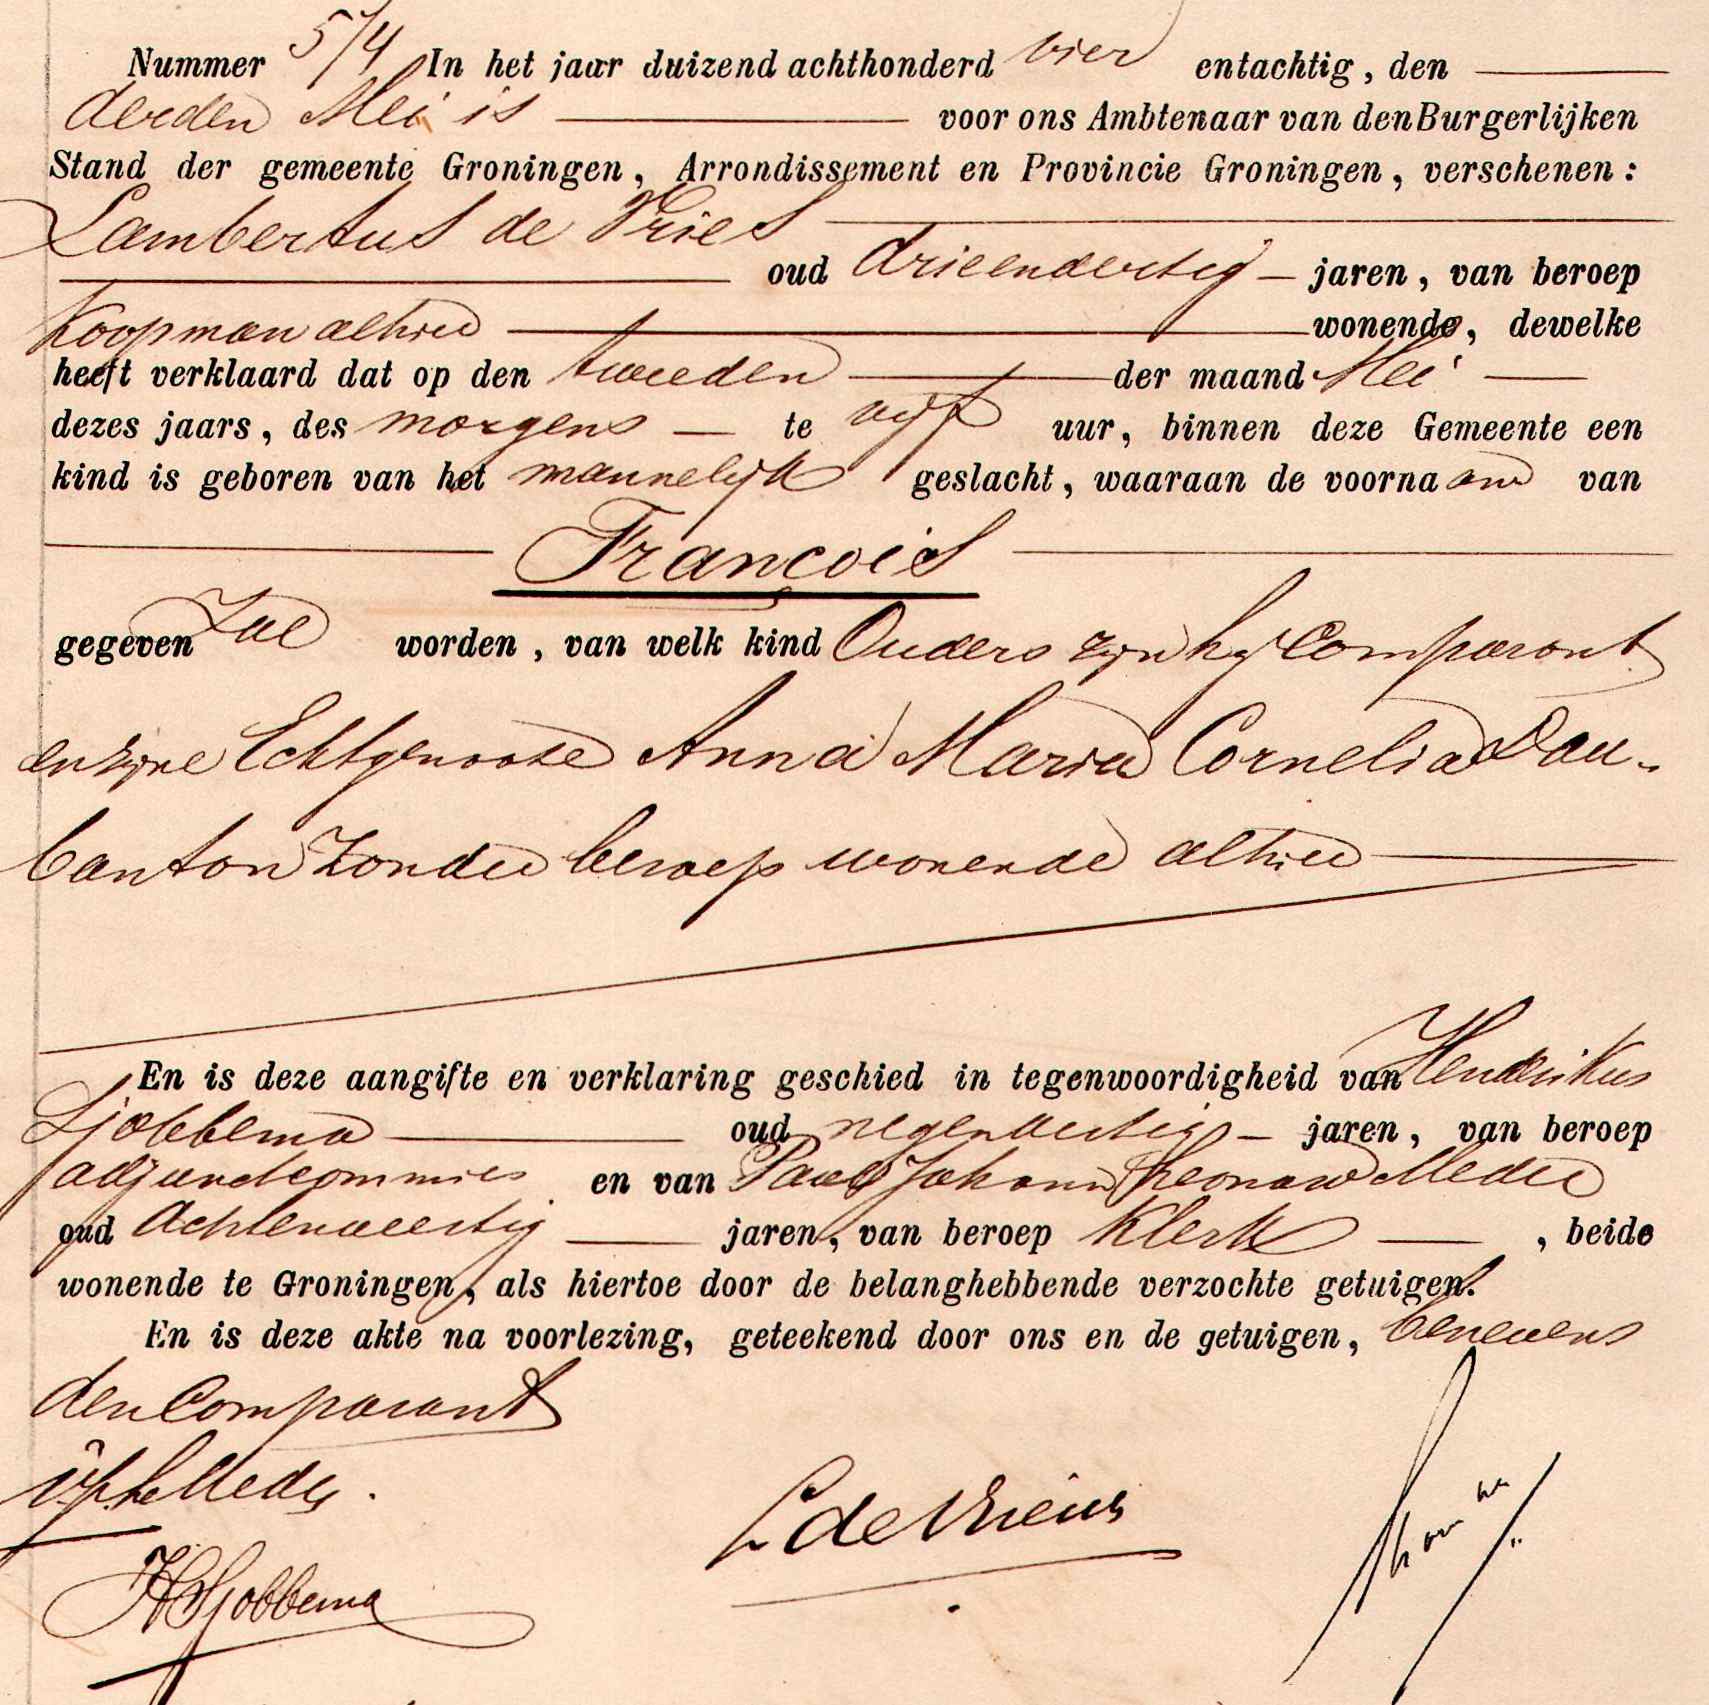 Nummer 574 In het jaar duizend achthonderd vier entachtig, den
derden Mei is voor ons Ambtenaar van den Burgerlijken
Stand der gemeente Groningen, Arrondissement en Provincie Groningen, verschenen:
Lambertus de Vries
oud drieendertig jaren, van beroep
Koopman alhier wonende, dewelke
heeft verklaard dat op den tweeden der maand Mei
dezes jaars, des morgens te vijf uur, binnen deze Gemeente een
kind is geboren van het mannelijk geslacht, waaraan de voornaam van
François
gegeven zal worden, van welk kind Ouders zijn hij Comparant
en zijne Echtgenoote Anna Maria Cornelia Dau-
banton zonder beroep wonende alhier
En is deze aangifte en verklaring geschied in tegenwoordigheid van Hendrikus
Sjobbema oud negenveertig jaren, van beroep
adjunctcommies en van Paul Johann Leonard Meder
oud Achtenveertig jaren, van beroep Klerk, beide
wonende te Groningen, als hiertoe door de belanghebbende verzochte getuigen.
En is deze akte na voorlezing, geteekend door ons en de getuigen, benevens
den Comparant
Meder.
L de Vries
HSjobbema